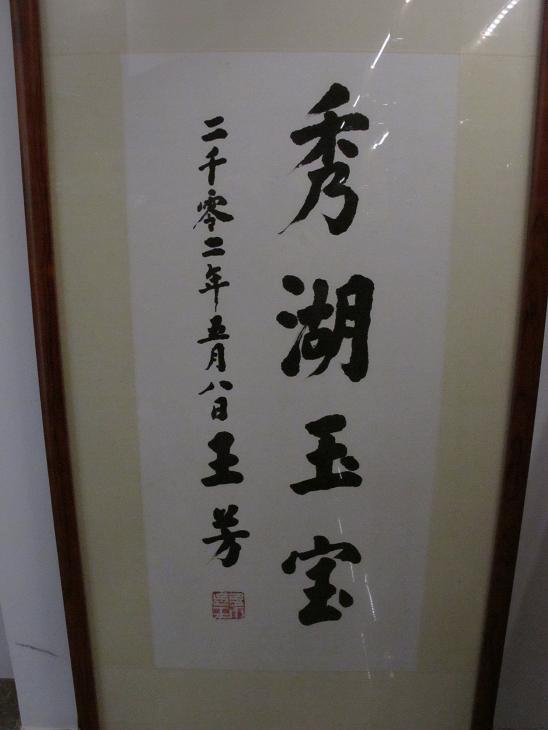 秀湖玉宝
二千零二年五月八日王芳